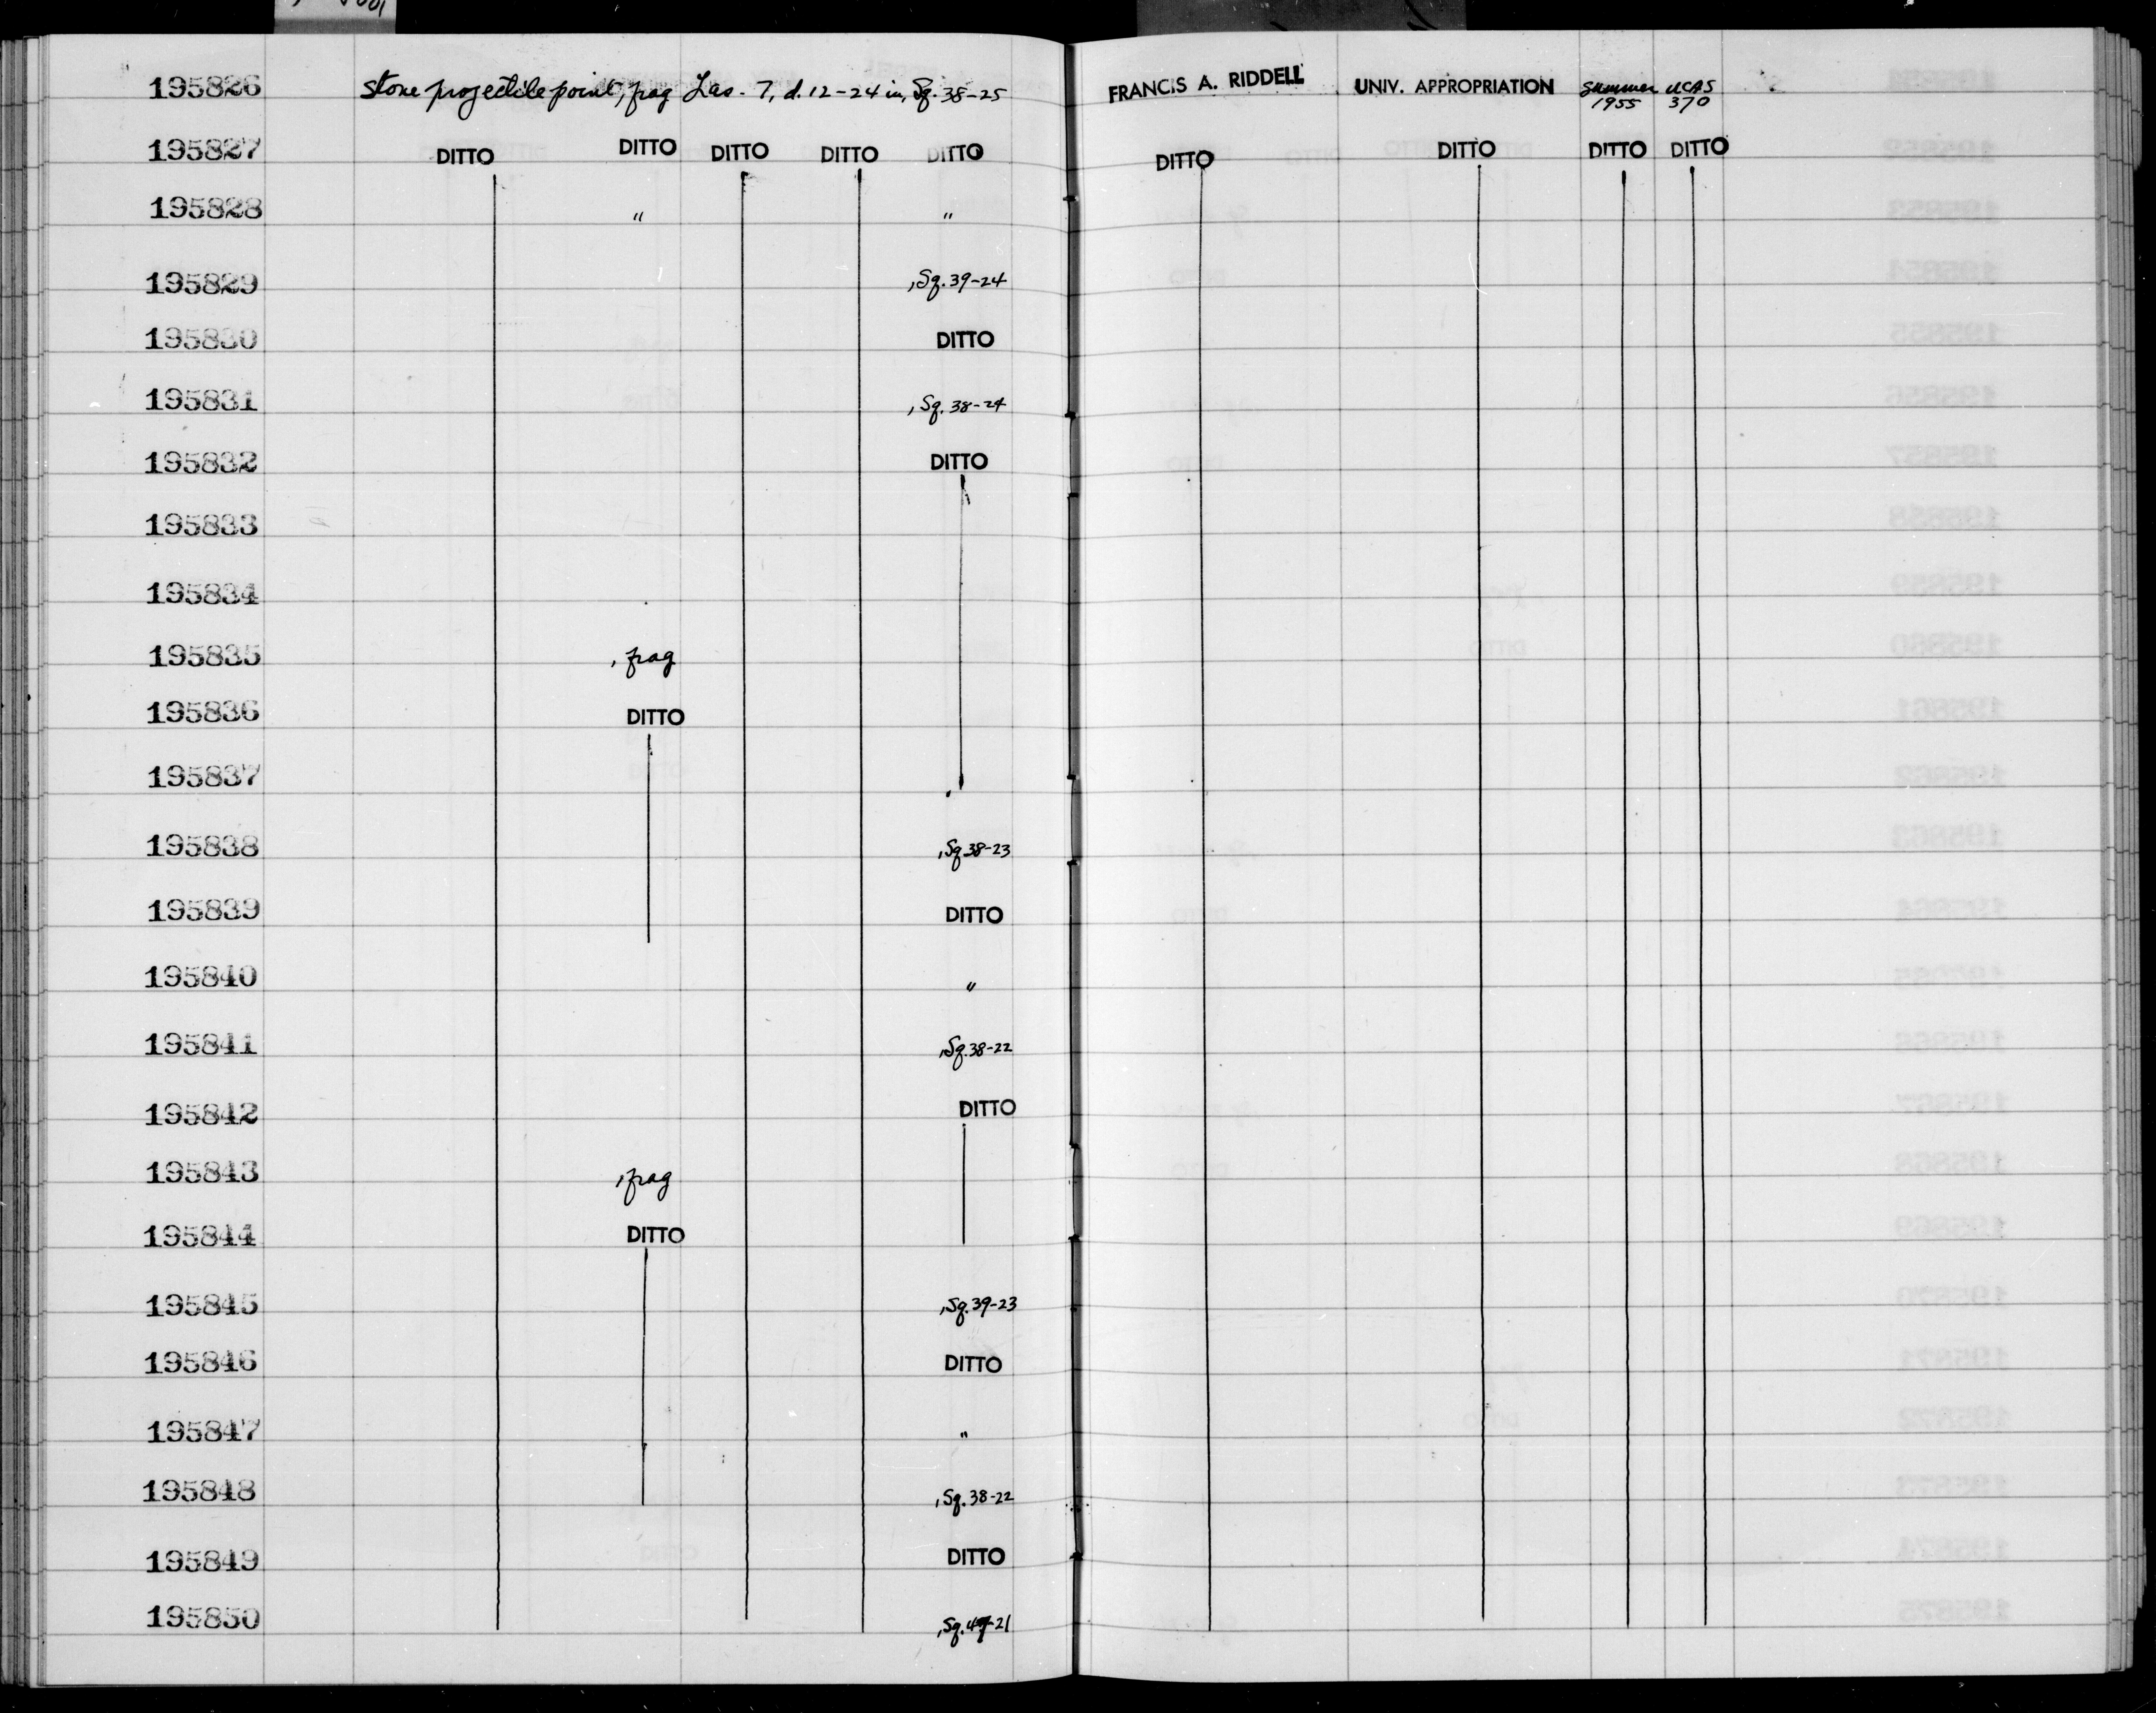 195826 Stone projectile point, frag Las-7, d.12-24 in, Sq. 38-25 FRANCIS A. RIDDELL UNIV. APPROPRIATION Summer 1955 UCAS 370
195827 DITTO DITTO DITTO DITTO DITTO DITTO DITTO DITTO DITTO
195828 " "
195829 , Sq. 39-24
195830 DITTO
195831 , Sq. 38-24
195832 DITTO
195833
195834
195835 , frag
195836 DITTO
195837
195838 , Sq 38-23
195839 DITTO
195840 "
195841 , Sq. 38-22
195842 DITTO
195843 , frag
195844 DITTO
195845 , Sq. 39-23
195846 DITTO
195847 "
195848 , Sq. 38-22
195849 DITTO
195850 , Sq.